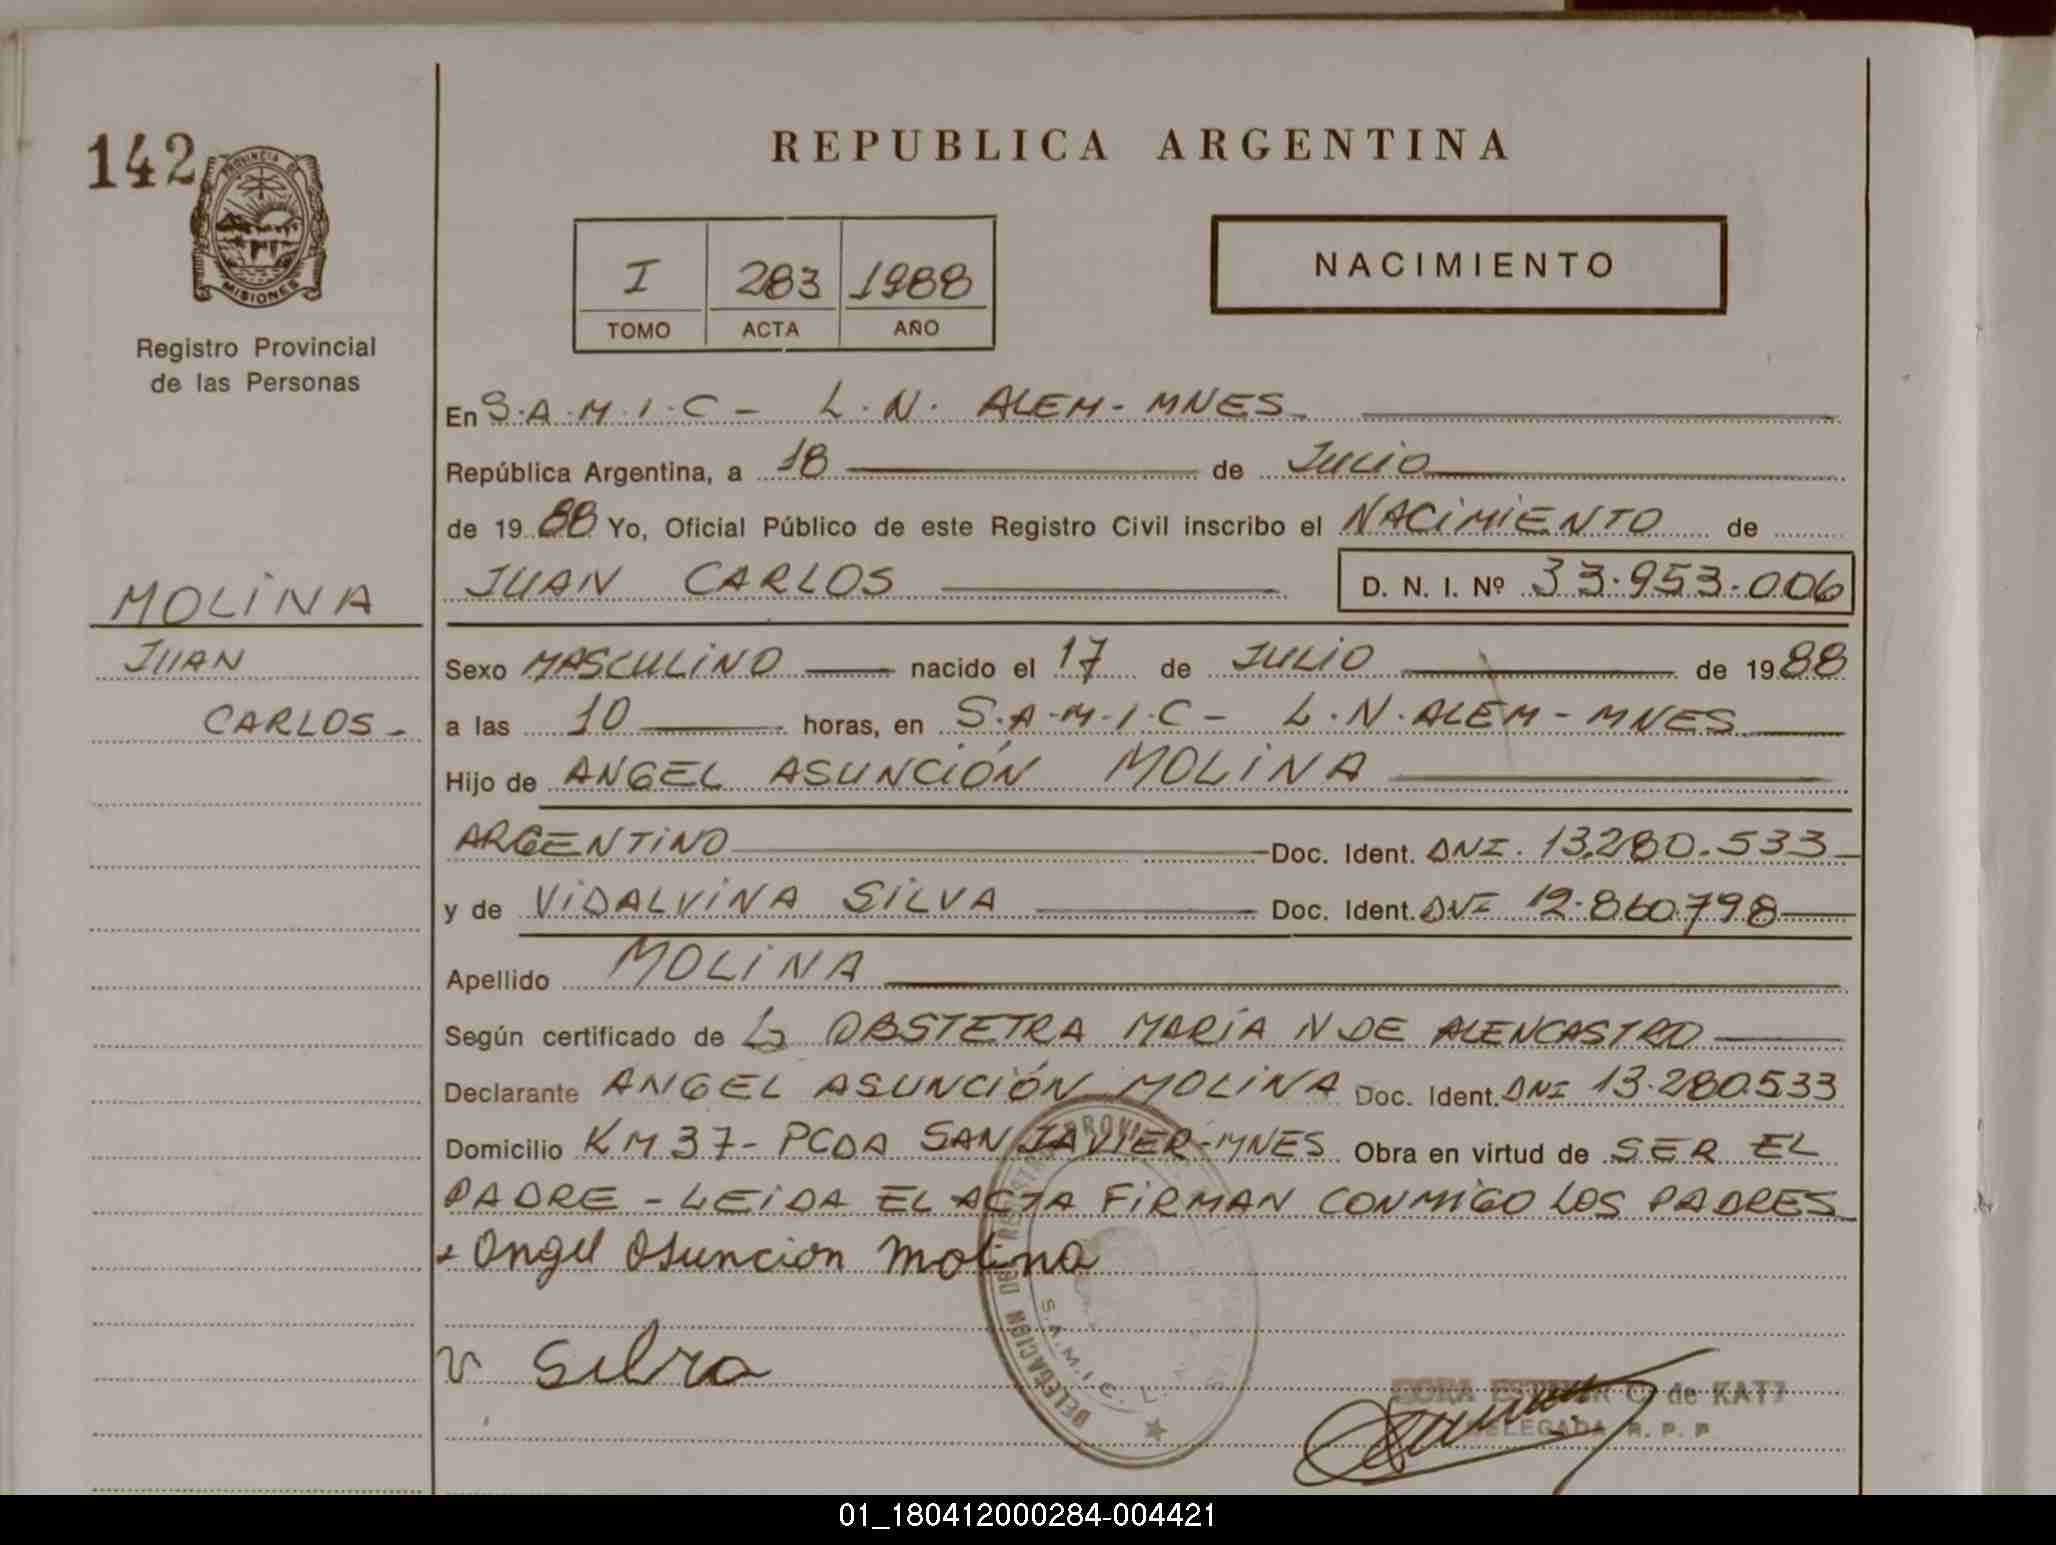 142
PROVINCIA DE
MISIONES
Registro Provincial
de las Personas
MOLINA
JUAN
CARLOS-
REPUBLICA ARGENTINA
I 283 1988
TOMO ACTA AÑO
NACIMIENTO
En S.A.M.I.C - L.N. ALEM - MNES
República Argentina, a 18 de JULIO
de 1988 Yo, Oficial Público de este Registro Civil inscribo el NACIMIENTO de
JUAN CARLOS D. N. I. Nº 33.953.006
Sexo MASCULINO nacido el 17 de JULIO de 1988
a las 10 horas, en S.A.M.I.C - L.N. ALEM - MNES
Hijo de ANGEL ASUNCIÓN MOLINA
ARGENTINO Doc. Ident. DNI. 13.280.533
y de VIDALVINA SILVA Doc. Ident. DNI 12.860.798
Apellido MOLINA
Según certificado de La OBSTETRA MARÍA N DE ALENCASTRO
Declarante ANGEL ASUNCIÓN MOLINA Doc. Ident. DNI 13.280.533
Domicilio KM 37 - PCDA SAN JAVIER - MNES Obra en virtud de SER EL
PADRE - LEIDA EL ACTA FIRMAN CONMIGO LOS PADRES
Angel Asuncion Molina
V Silva
DELEGACION DEL REGISTRO PROVINCIAL
S.A.M.I.C. L.
de KATZ
DELEGADA R. P. P.
01_180412000284-004421